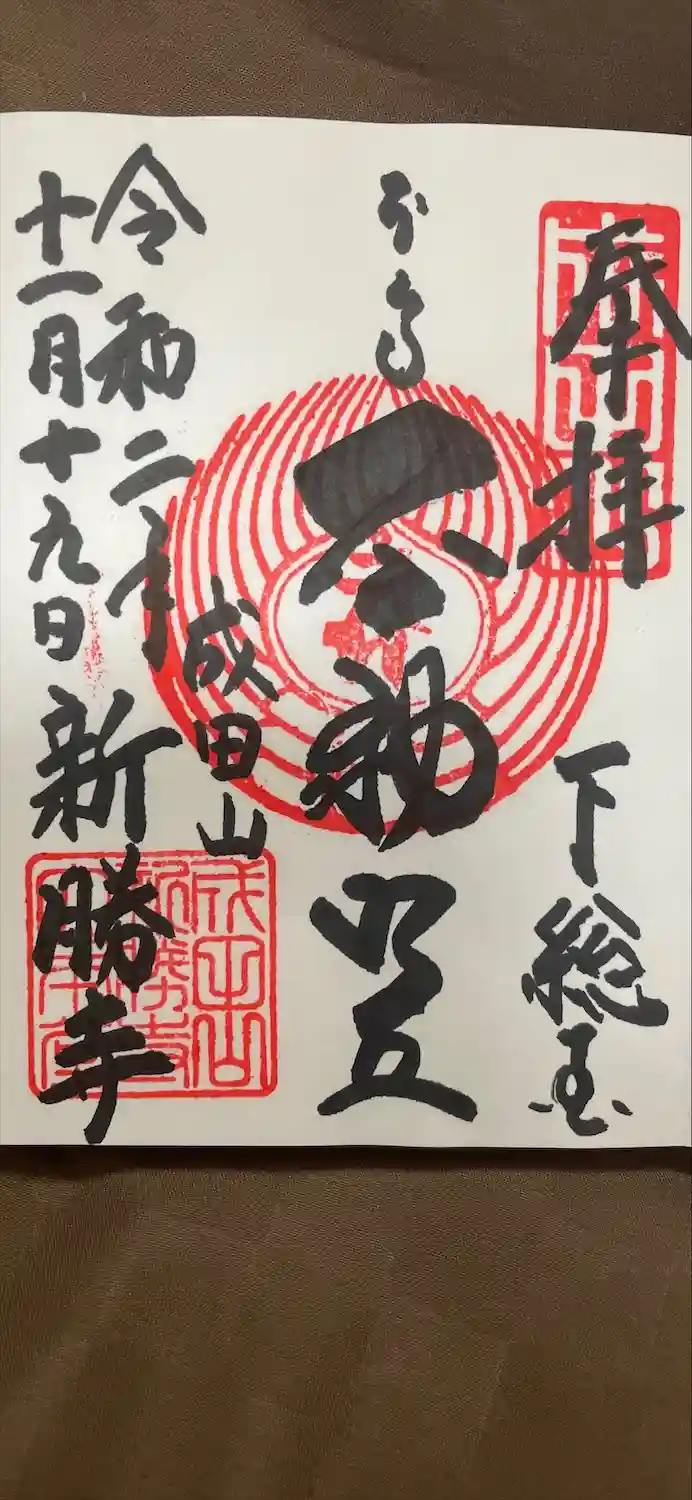 奉拝
下総国
不動明王
成田山
令和二年
十一月十九日
新勝寺
成田山
新勝寺